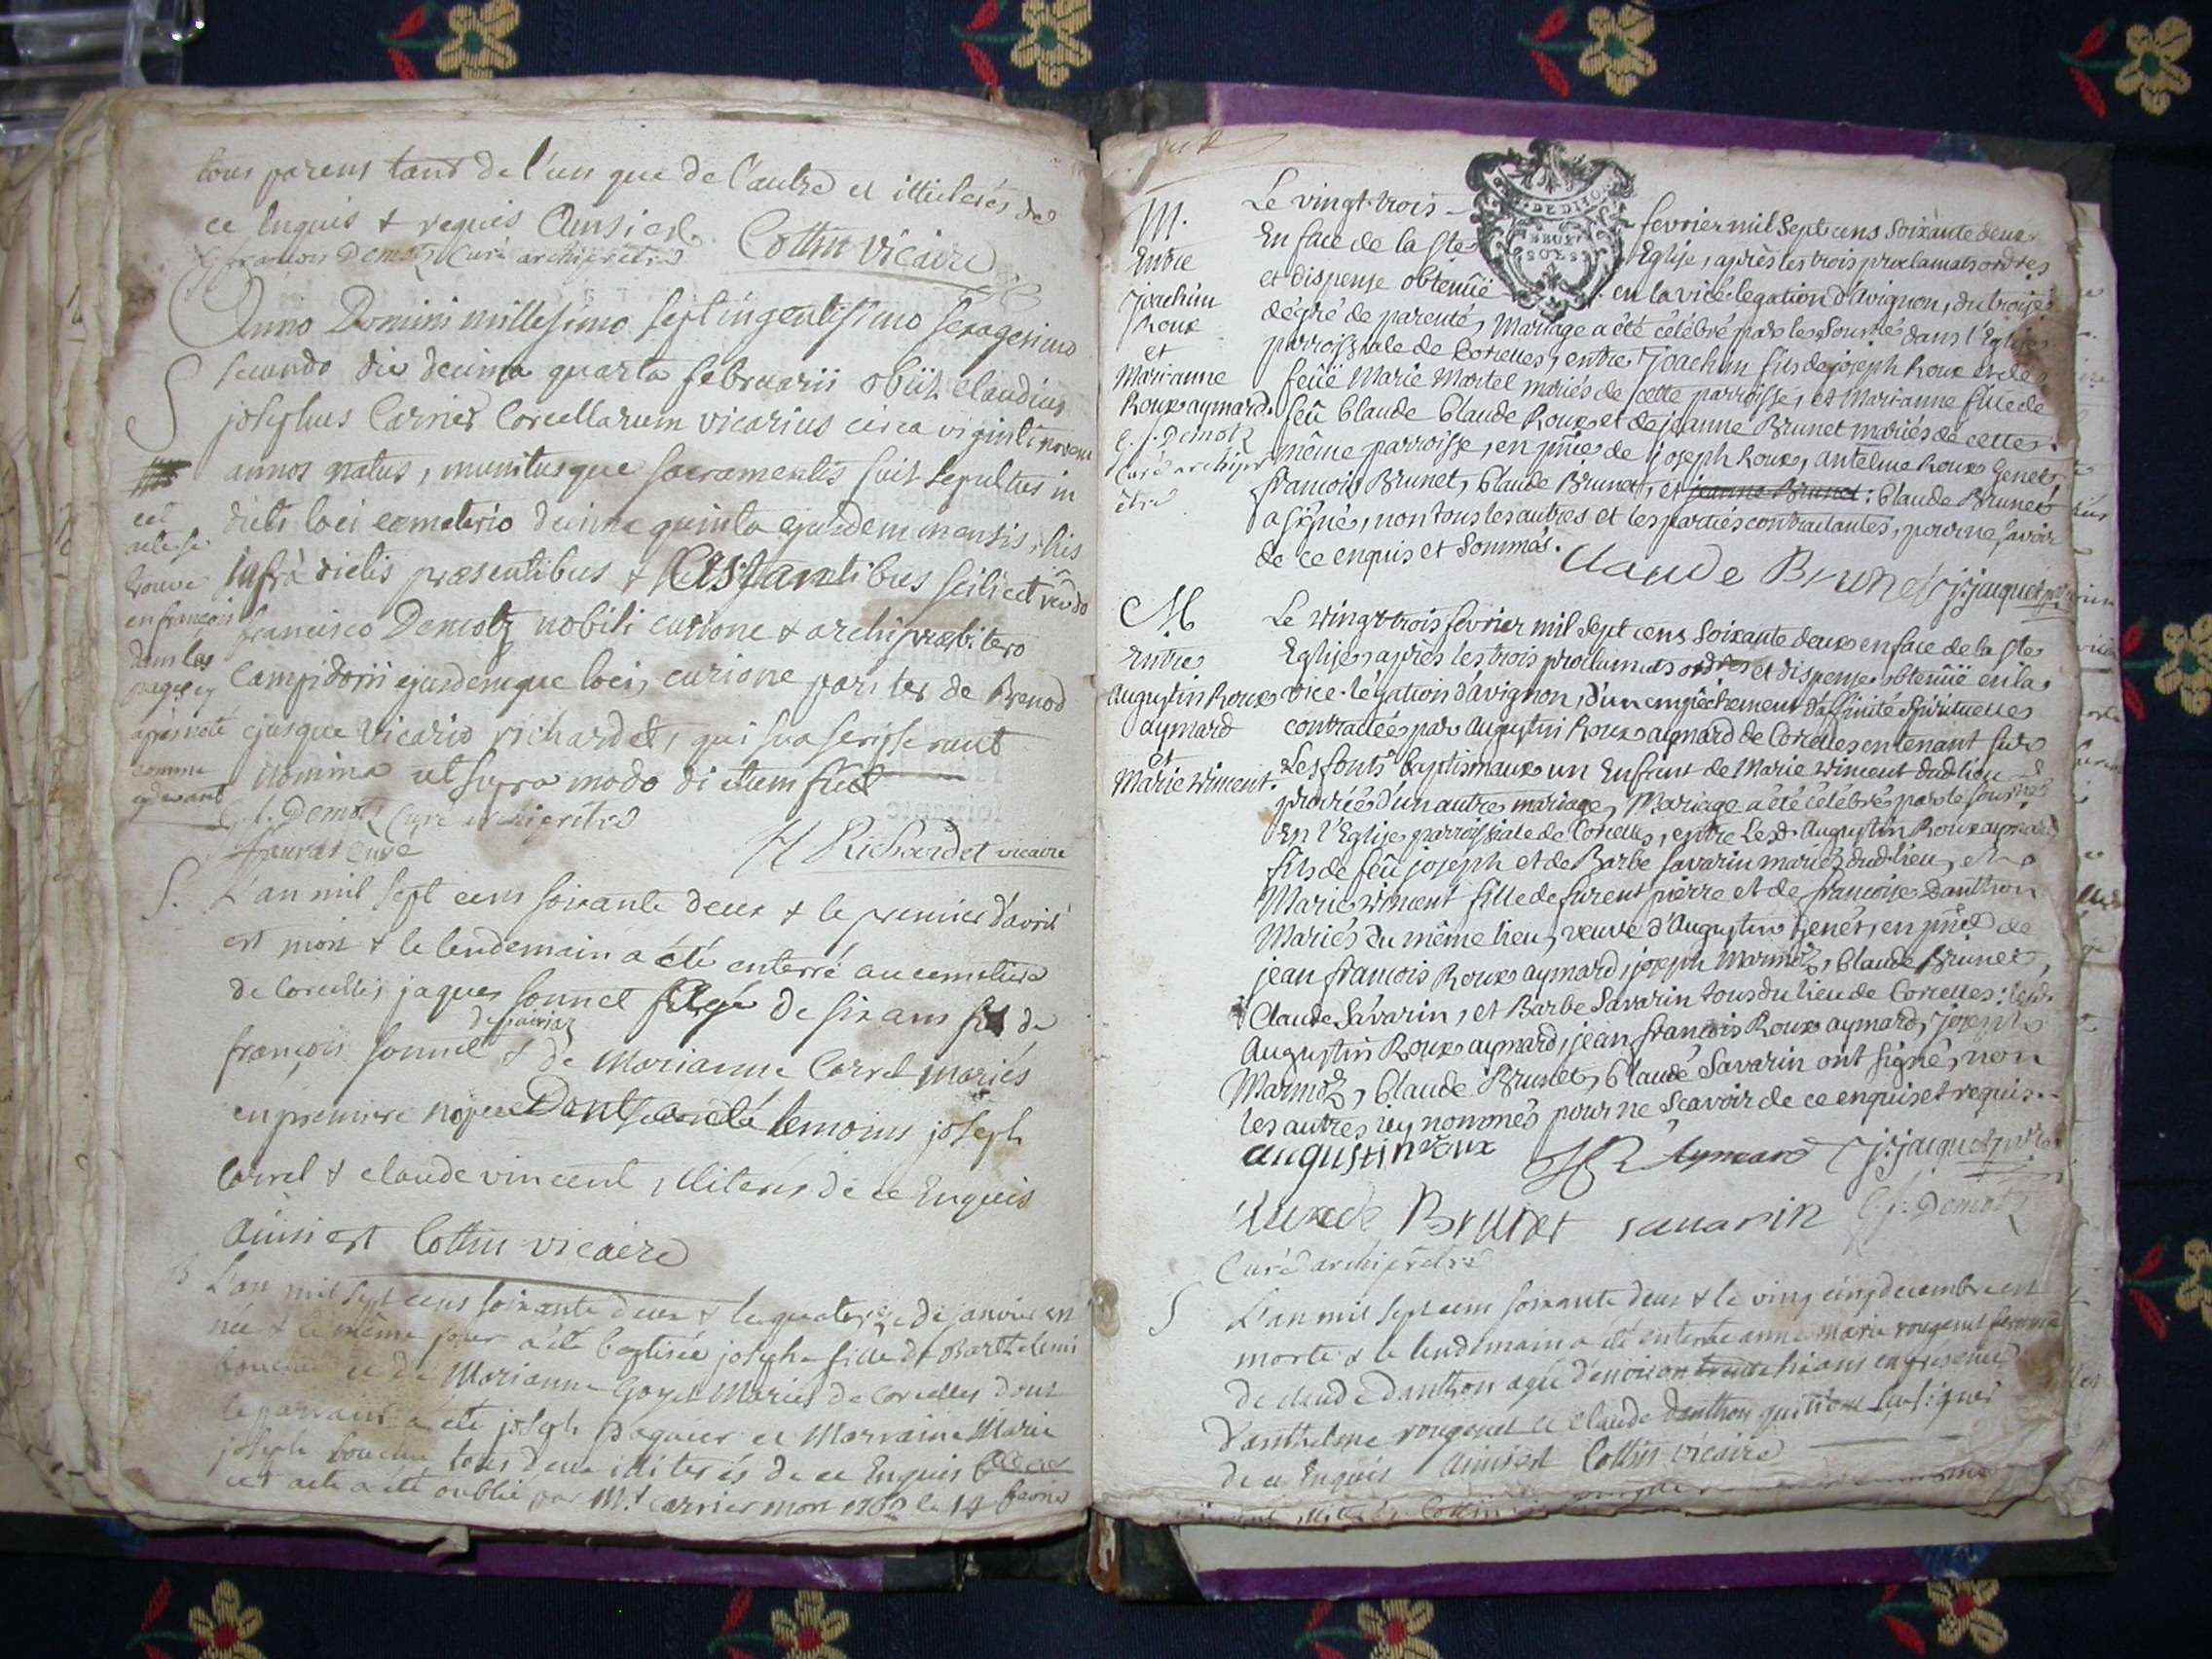 tous parens tant de l'un que de l'autre et illiterés de
ce Enquis & requis Ainsi est. Cottin vicaire
françois Demotz Curé archiprêtre
Anno Domini millesimo septingentesimo sexagesimo
S secundo die decima quarta februarii obiit claudius
josephus Carrier Corcellarum vicarius circa viginti novem
annos natus, munitusque sacramentis fuit sepultus in
dicti loci cemeterio decima quinta ejusdem mensis, his
infrà dictis præsentibus & astantibus scilicet rdo
francisco Demotz nobili curione & archipræsbitero
Campidorii ejusdemque loci, curione pariter de Brenod
ejusque vicario richardet, qui sua scripserunt
nomina ut supra modo dictum fuit
cet
acte se
trouve
en françois
dans les
pages cy
après noté
comme
cy devant
Demotz Curé archiprêtre
curé
H Richardet vicaire
S. L'an mil sept cens soixante deux & le premier d'avril
est mort & le lendemain a été enterré au cemetiere
de Corcelles jaques sonnet âgé de six ans fils de
françois sonnet & de Marianne Carrel mariés
en premiere nopce Dont ont été temoins joseph
Carrel & claude vincent, illiterés de ce Enquis
Ainsi est Cottin vicaire
B L'an mil sept cens soixante deux & le quatorze de janvier est
née & le même jour a été baptisée josephe fille de Barthelemi
et de Marianne Goyet Mariés de Corcelles dont
le parrain a été joseph paquier et Marraine Marie
joseph tous deux illiterés de ce Enquis
cet acte a été oublié par Mr carrier mort 1762 le 14 fevrier
M.
Entre
Joachim
Roux
et
Marianne
Roux aymard.
C. f. Demotz
Curé archipr
être
Le vingt-trois fevrier mil sept cens soixante deux
DE DIJON
En face de la Ste Eglise, après les trois proclamats ordres
et dispense obtenüe en la vice-legation d'Avignon, du troisie
dégré de parenté, Mariage a été célébré par le soussné dans l'Eglise
parroissiale de Corcelles, entre Joachim fils de joseph Roux et de
feüe Marie Martel mariés de cette parroisse, et Marianne fille de
feü Claude Claude Roux et de jeanne Brunet mariés de cette
même parroisse, en pnce de joseph Roux, antelme Roux Genet,
francois Brunet, Claude Brunet, et jeanne Brunet: Claude Brunet
a signé, non tous les autres et les parties contractantes, pour ne savoir
de ce enquis et sommés. Claude Brunet J. jacquet ptre
M
Entre
Augustin Roux
aymard
et
Marie Wincent.
Le vingt trois fevrier mil sept cens soixante deux en face de la Ste
Eglise, après les trois proclamats ordres et dispense obtenüe en la
vice-légation d'avignon, d'un empêchement d'affinité spirituelle
contractée par Augustin Roux aymard de Corcelles en tenant sur
Les fonts baptismaux un Enfant de Marie Wincent dud lieu
procréé d'un autre mariage, Mariage a été célébré par le soussné
En l'Eglise parroissiale de Corcelles, entre Led. Augustin Roux aymard
fils de feü joseph et de Barbe Savarin mariés dud. lieu, et
Marie Wincent fille de furent pierre et de francoise Danthon
Mariés du même lieu, veuve d'Augustin Genet, en pnce de
jean francois Roux aymard, joseph Marmotz, Claude Brunet,
Claude Savarin, et Barbe Savarin tous du lieu de Corcelles: lesd.
Augustin Roux aymard, jean francois Roux aymard, joseph
Marmotz, Claude Brunet, Claude Savarin ont signé, non
les autres icy nommés pour ne sçavoir de ce enquis et requis.
augustin roux Aymard J. jacquet ptre
claude Brunet savarin C. f. Demotz
Curé archiprêtre
S L'an mil sept cens soixante deux & le ving cinq decembre est
morte & le lendemain a été enterée anne marie rougemet femme
de claude danthon agée d'environ ans en présence
D'anthelme rougemet et claude danthon
de ce Enquis Ainsi est Cottin vicaire